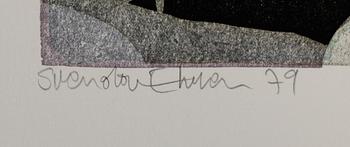 Svenolov Ehrén 79